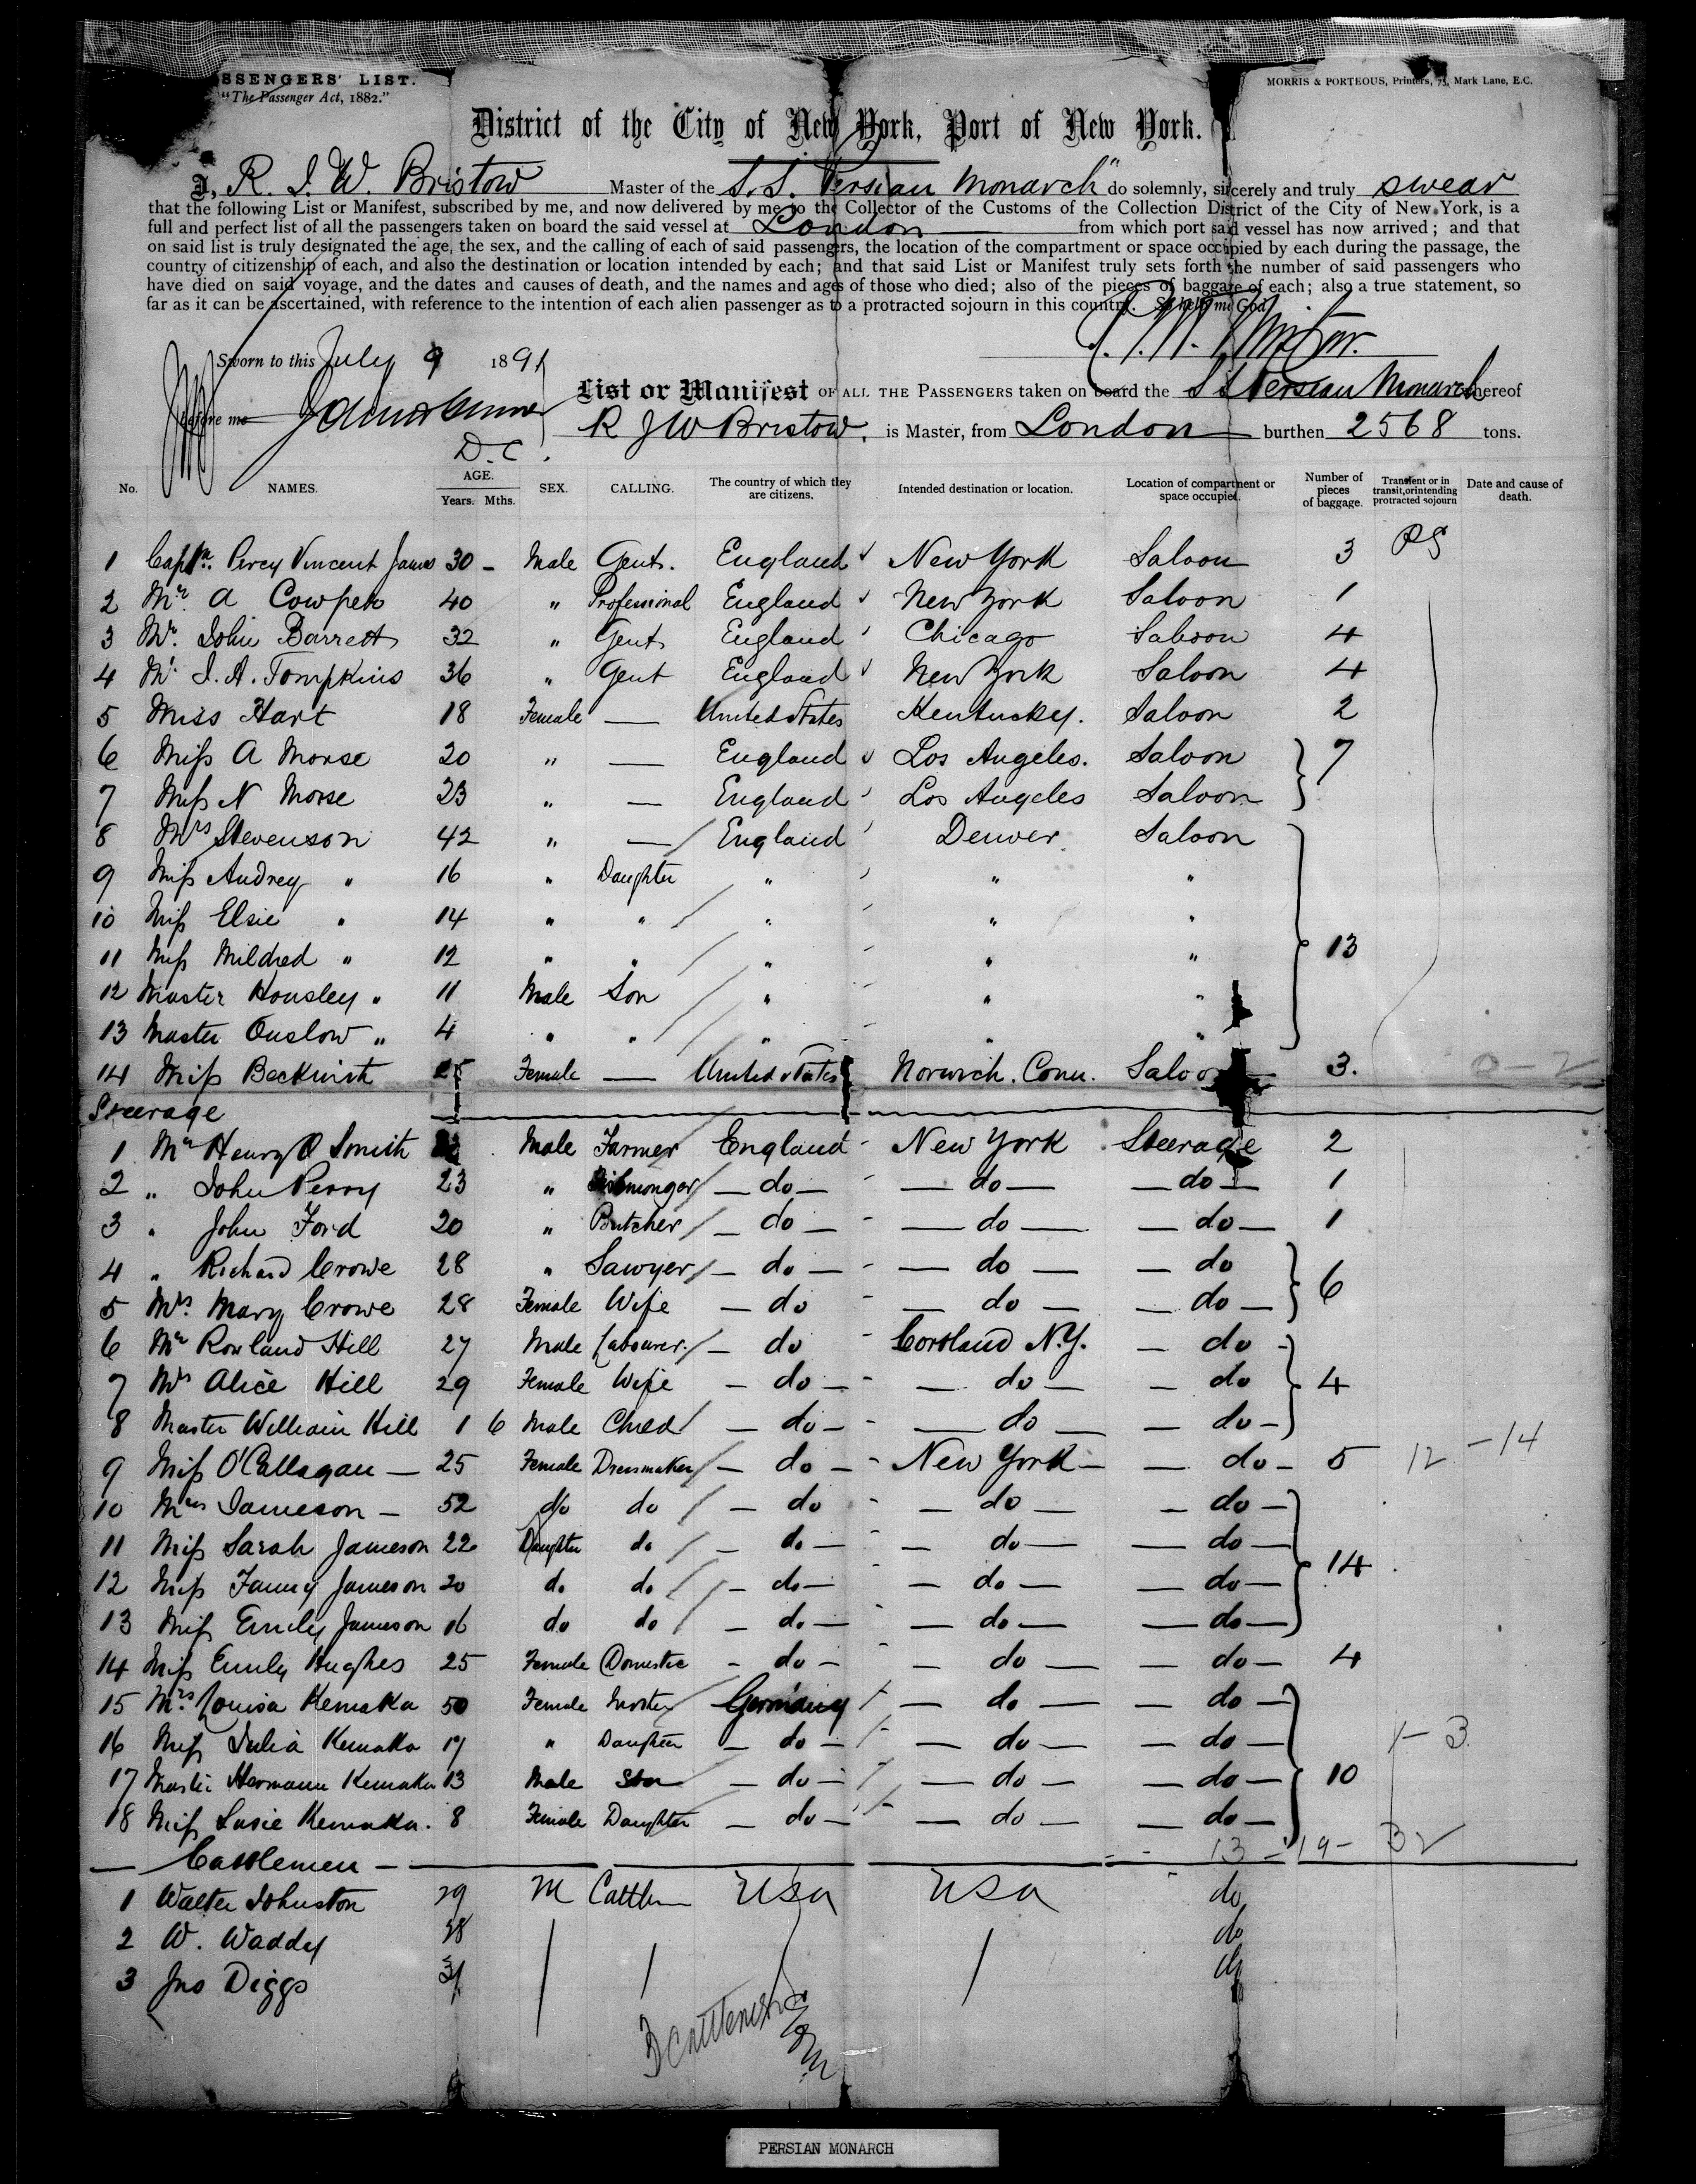 SSENGERS' LIST.
"The Passenger Act, 1882."
MORRIS & PORTEOUS, Printers, 75, Mark Lane, E.C.
District of the City of New York, Port of New York.
I, R. J. W. Bristow Master of the S.S. "Persian Monarch" do solemnly, sincerely and truly swear
that the following List or Manifest, subscribed by me, and now delivered by me to the Collector of the Customs of the Collection District of the City of New York, is a
full and perfect list of all the passengers taken on board the said vessel at London from which port said vessel has now arrived; and that
on said list is truly designated the age, the sex, and the calling of each of said passengers, the location of the compartment or space occupied by each during the passage, the
country of citizenship of each, and also the destination or location intended by each; and that said List or Manifest truly sets forth the number of said passengers who
have died on said voyage, and the dates and causes of death, and the names and ages of those who died; also of the pieces of baggage of each; also a true statement, so
far as it can be ascertained, with reference to the intention of each alien passenger as to a protracted sojourn in this country. So help me God
Sworn to this July 9 1891
List or Manifest OF ALL THE PASSENGERS taken on board the S S Persian Monarch thereof
before me
R J W Bristow, is Master, from London burthen 2568 tons.
D.C.
No. NAMES. AGE. Years. Mths. SEX. CALLING. The country of which they are citizens. Intended destination or location. Location of compartment or space occupied. Number of pieces of baggage. Transient or in transit, or intending protracted sojourn Date and cause of death.
1 Captn. Percy Vincent James 30 - Male Gent. England New York Saloon 3 PS
2 Mr. A Cowper 40 " Professional England New York Saloon 1
3 Mr. John Barrett 32 " Gent England Chicago Saloon 4
4 Mr. J. A. Tompkins 36 " Gent England New York Saloon 4
5 Miss Hart 18 Female — United States Kentucky. Saloon 2
6 Miss A Morse 20 " — England Los Angeles. Saloon 7
7 Miss N Morse 23 " — England Los Angeles Saloon
8 Mrs Stevenson 42 " — England Denver Saloon
9 Miss Audrey " 16 " Daughter " " "
10 Miss Elsie " 14 " " " " "
11 Miss Mildred " 12 " " " " " 13
12 Master Housley " 11 Male Son " " "
13 Master Onslow " 4 " " " " "
14 Miss Beckwith 25 Female — United States Norwich. Conn. Saloon 3. 0-2
Steerage
1 Mr Henry O Smith Male Farmer England New York Steerage 2
2 " John Perry 23 " — do — — do — — do — 1
3 " John Ford 20 " Butcher — do — — do — — do — 1
4 " Richard Crowe 28 " Sawyer — do — — do — — do 6
5 Mrs. Mary Crowe 28 Female Wife — do — do — — do —
6 Mr Rowland Hill 27 Male Labourer — do Cortland N.Y. — do -
7 Mrs Alice Hill 29 Female Wife — do — — do — — do 4
8 Master William Hill 1 6 Male Child — do — — do — — do —
9 Miss O'Callagan — 25 Female Dressmaker — do — New York — — do — 5 12 -14
10 Mrs Jameson — 52 do do — do — do — — do —
11 Miss Sarah Jameson 22 Daughter do — do — — do — — do — 14
12 Miss Fanny Jameson 20 do do — do — — do — — do —
13 Miss Emily Jameson 16 do do — do — — do — — do —
14 Miss Emily Hughes 25 Female Domestic - do - — do — — do — 4
15 Mrs Louisa Kemaka 50 Female Germany — do — — do —
16 Miss Julia Kemaka 17 " Daughter — do — — do — — do — 3
17 Master Hermann Kemaka 13 Male Son — do — — do — — do — 10
18 Miss Susie Kemaka. 8 Female Daughter — do — — do — — do —
13 - 19 - 32
— Cattlemen —
1 Walter Johnston 29 M Cattlm USA USA do
2 W. Waddy 38 do
3 Jno Diggs 31 do
3 Cattlemen
PERSIAN MONARCH